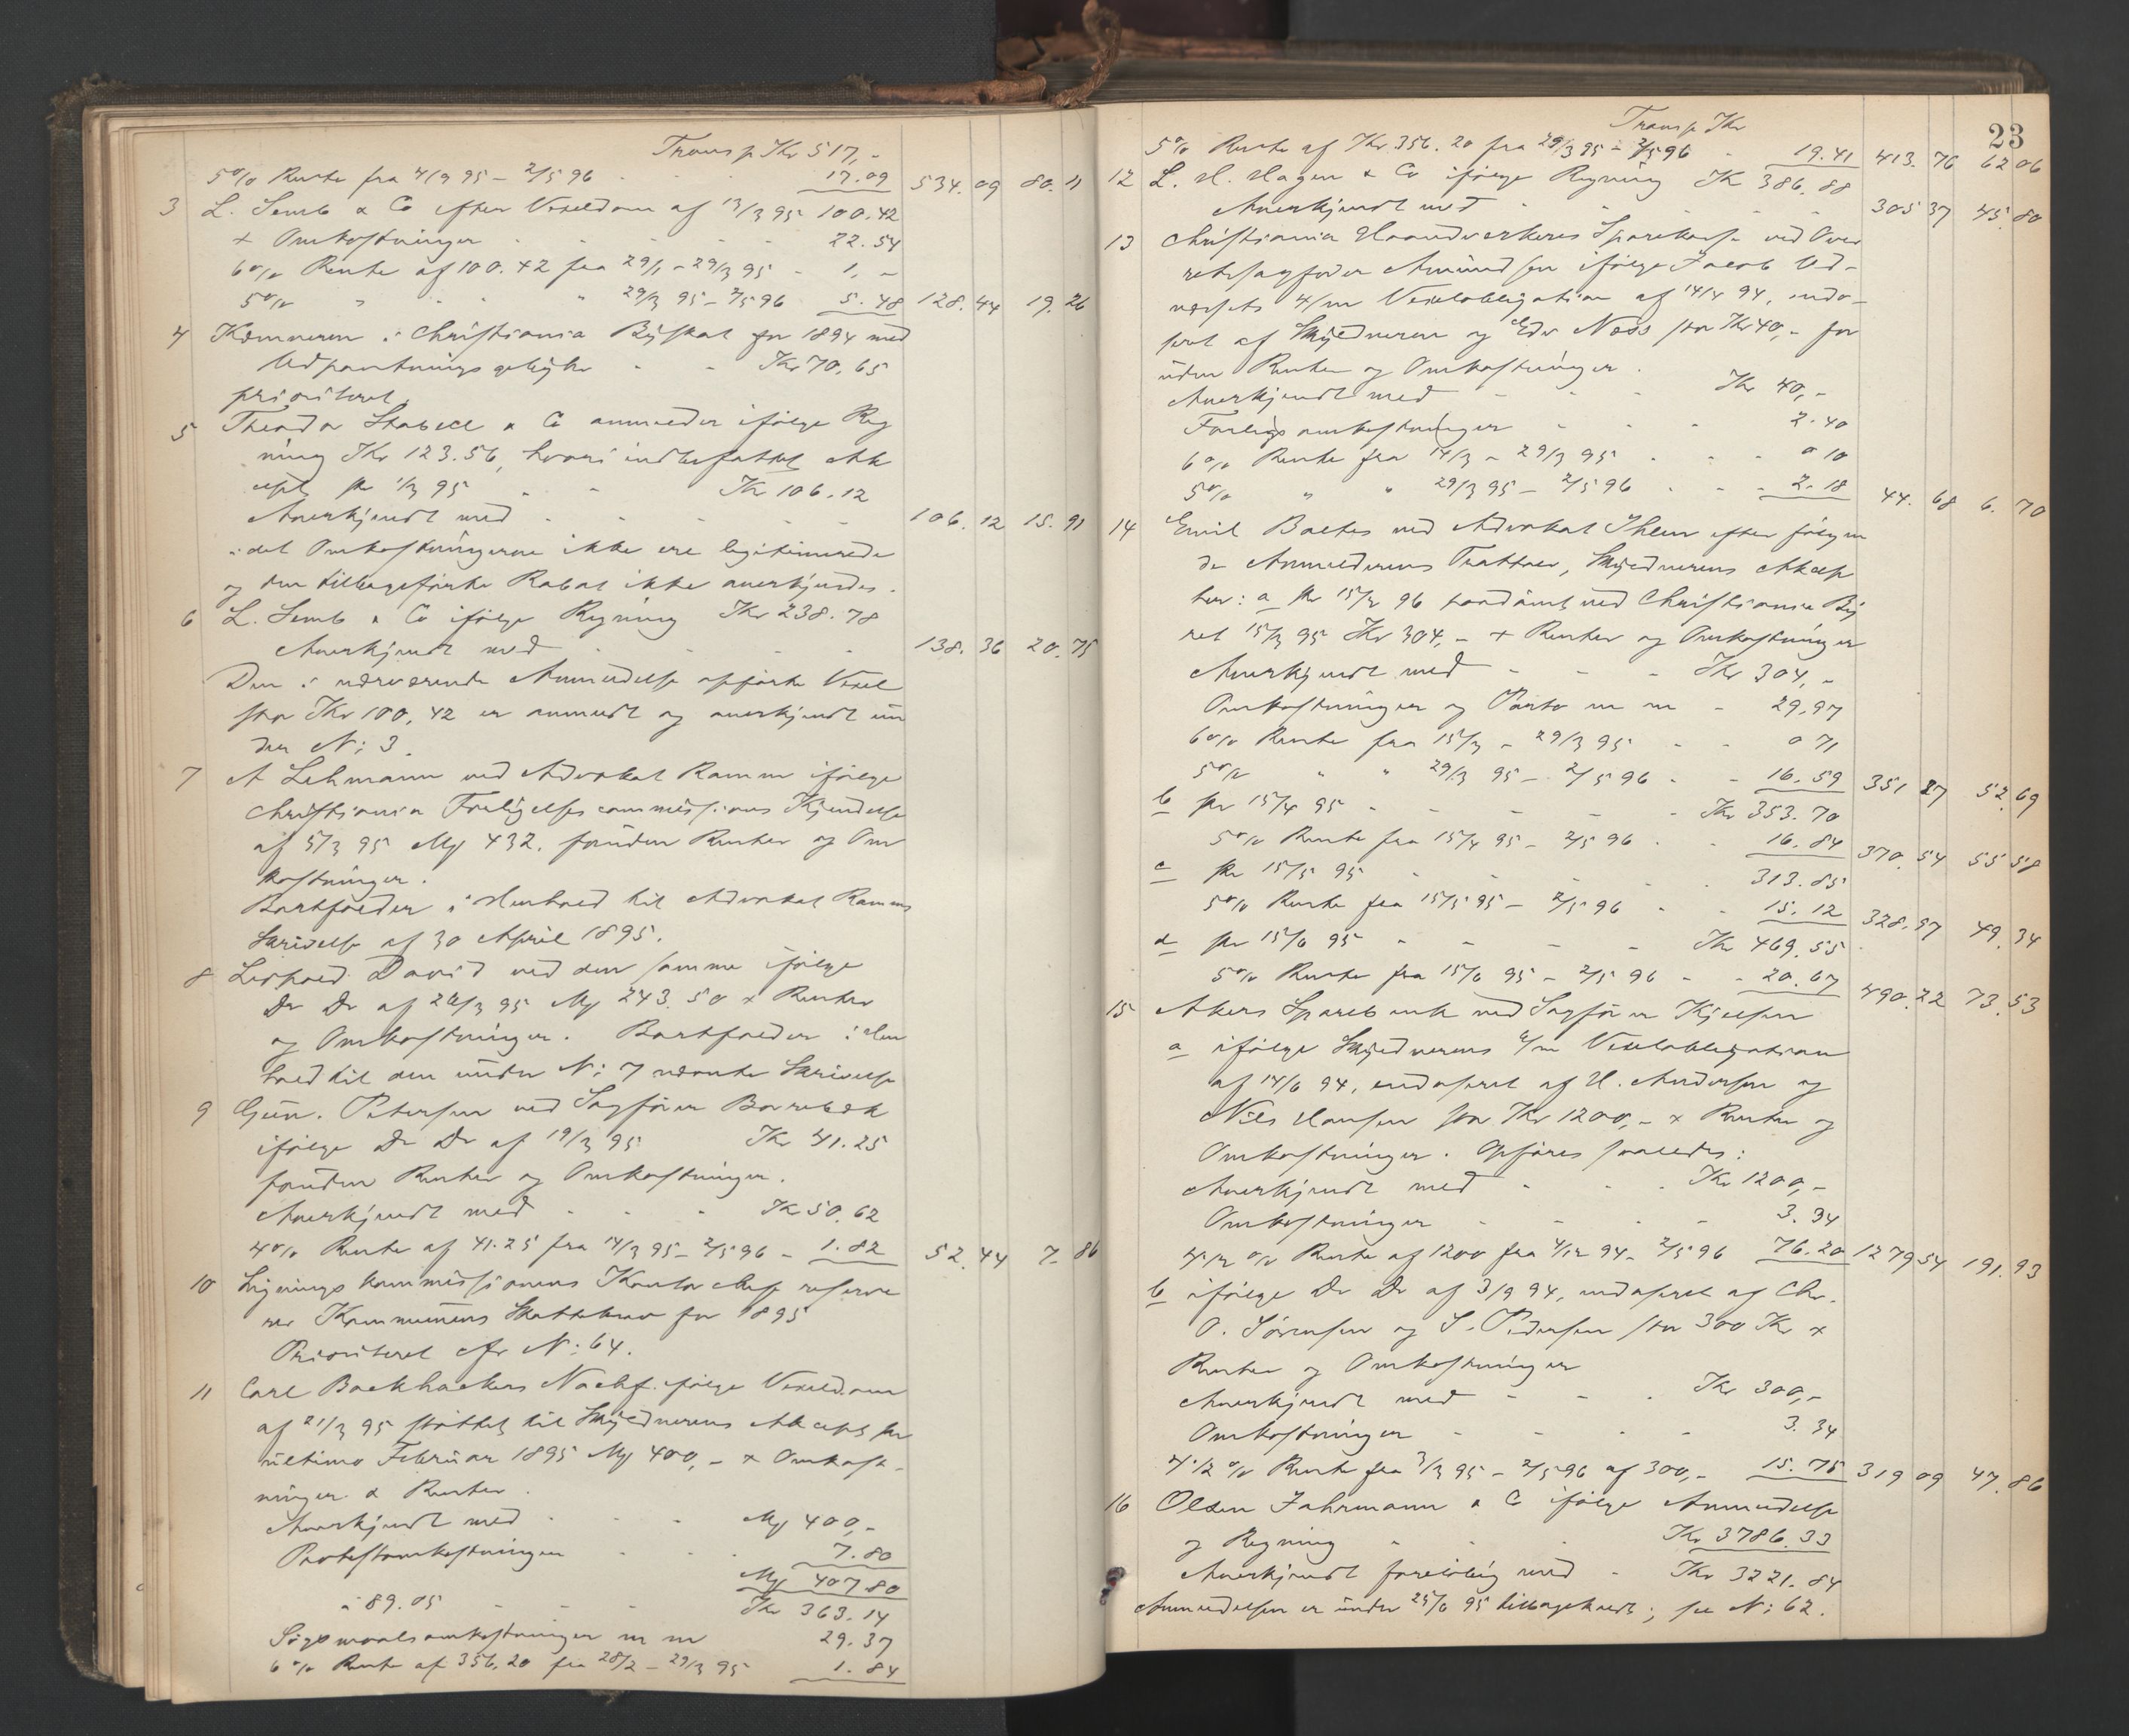 Transp Kr 517,-
5% Rente fra 4/9 95 - 2/5 96 17.09 534.09 80.11
3 L. Semb & Co efter Vexeldom af 13/3 95 100.42
+ Omkostninger 22.54
6% Rente af 100.42 fra 29/1 - 29/3 95 - 1,-
5% " " 29/3 95 - 2/5 96 5.48 128.44 19.26
4 Kæmneren i Christiania Byskat for 1894 med
Udpantningsgebyhr - - Kr 70.65
prioriteret.
5 Theodor Stabell & Co anmelder ifølge Reg
ning Kr 123.56, hvori indbefattet Ak
cept pr 1/3 95 - - Kr 106.12
Anerkjendt med - - - - 106.12 15.91
idet Omkostningerne ikke ere legitimerede
og den tilbageførte Rabat ikke anerkjendes.
6 L. Semb & Co ifølge Regning Kr 238.78
Anerkjendt med - - - 138.36 20.75
Den i nærværende Anmeldelse opførte Vexel
stor Kr 100,42 er anmeldt og anerkjendt un
der N: 3.
7 A Lehmann ved Advokat Ramm ifølge
Christiania Forligelsescommissions Kjendelse
af 5/3 95 Mk 432. foruden Renter og Om
kostninger.
Bortfalder i Henhold til Advokat Ramms
Skrivelse af 30 April 1895.
8 Leopold David ved den samme ifølge
Do Do af 26/3 95 Mk 243.50 + Renter
og Omkostninger. Bortfalder i Hen
hold til den under N: 7 nævnte Skrivelse
9 Gün. Petersen ved Sagfører Borrebæk
ifølge Do Do af 19/3 95 Kr 41.25
foruden Renter og Omkostninger.
Anerkjendt med - - - Kr 50.62
4% Rente af 41.25 fra 14/3 95 - 2/5 96 - 1.82 52.44 7.86
10 Lignings kommissionens Kontorchef reserve
rer Kommunens Skattekrav for 1895
Prioriteret cfr N: 64.
11 Carl Backhackers Nachf. ifølge Vexeldom
af 21/3 95 støttet til Skyldnerens Akcept pr
ultimo Februar 1895 Mk 400,- + Omkost-
ninger & Renter.
Anerkjendt med - - - Mk 400,-
Protestomkostninger - - - 7.80
Mk 407.80
à 89.05 - - - Kr 363.14
Søgsmaalsomkostninger m m 29.37
6% Rente af 356,20 fra 28/2 - 29/3 95 1.84
23
Transp Kr
5% Rente af Kr 356.20 fra 29/3 95 - 2/5 96 - 19.41 413.76 62 06
12 L. H. Hagen & Co ifølge Regning Kr 386.88
Anerkjendt med - - - - 305 37 45.80
13 Christiania Haandverkeres Sparekasse ved Over
retssagfører Amundsen ifølge Jacob Ud-
næsets 4/m Vexelobligation af 14/4 94, endo-
seret af Skyldneren og Edv Næss stor Kr 40,- for
uden Renter og Omkostninger.
Anerkjendt med - - - Kr 40,-
Forligsomkostninger - - - 2.40
6% Rente fra 14/3 - 29/3 95 - - - 0 10
5% " " 29/3 95 - 2/5 96 - - - 2.18 44.68 6.70
14 Emil Boltes ved Advokat Ihlen efter følgen
de Anmelderens Tratter, Skyldnerens Akcep
ter: a pr 15/2 96 paadømt ved Christiania By
ret 15/3 95 Kr 304,- + Renter og Omkostninger
Anerkjendt med - - - Kr 304,-
Omkostninger og Porto m m - 29.97
6% Rente fra 15/3 - 29/3 95 - - 0 71
5% " " 29/3 95 - 2/5 96 - - 16.59 351 27 52.69
b pr 15/4 95 - - - - - Kr 353.70
5% Rente fra 15/4 95 - 2/5 96 - - 16.84 370.54 55 58
c pr 15/5 95 - - - - 313.85
5% Rente fra 15/5 95 - 2/5 96 - - 15.12 328.97 49.34
d pr 15/6 95 - - - - Kr 469.55
5% Rente fra 15/6 95 - 2/5 96 - - 20.67 490.22 73.53
15 Akers Sparebank ved Sagfører Kjelsen
a ifølge Skyldnerens 6/m Vexelobligation
af 14/6 94, endoseret af H. Andersen og
Nils Hansen stor Kr 1200,- + Renter og
Omkostninger. Opføres saaledes:
Anerkjendt med - - - Kr 1200,-
Omkostninger - - - - 3.34
4 1/2 % Rente af 1200 fra 4/12 94 - 2/5 96 76.20 1279 54 191.93
b ifølge Do Do af 3/9 94, endoseret af Chr.
O. Sørensen og S. Pedersen stor 300 Kr +
Renter og Omkostninger
Anerkjendt med - - - Kr 300,-
Omkostninger - - - - 3.34
4 1/2 % Rente fra 3/3 95 - 2/5 96 af 300,- 15.75 319 09 47.86
16 Olsen Fahrmann & Co ifølge Anmeldelse
og Regning - - - Kr 3786.33
Anerkjendt foreløbig med - Kr 3221.84
Anmeldelsen er under 25/6 95 tilbagekaldt; se N: 62.